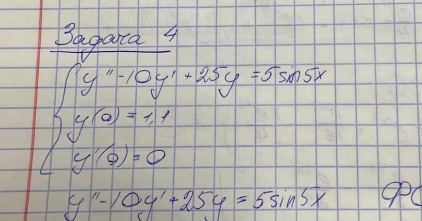 Задача 4
y'' - 10y' + 25y = 5sin5x
y(0) = 1,1
y'(0) = 0
y'' - 10y' + 25y = 5sin5x